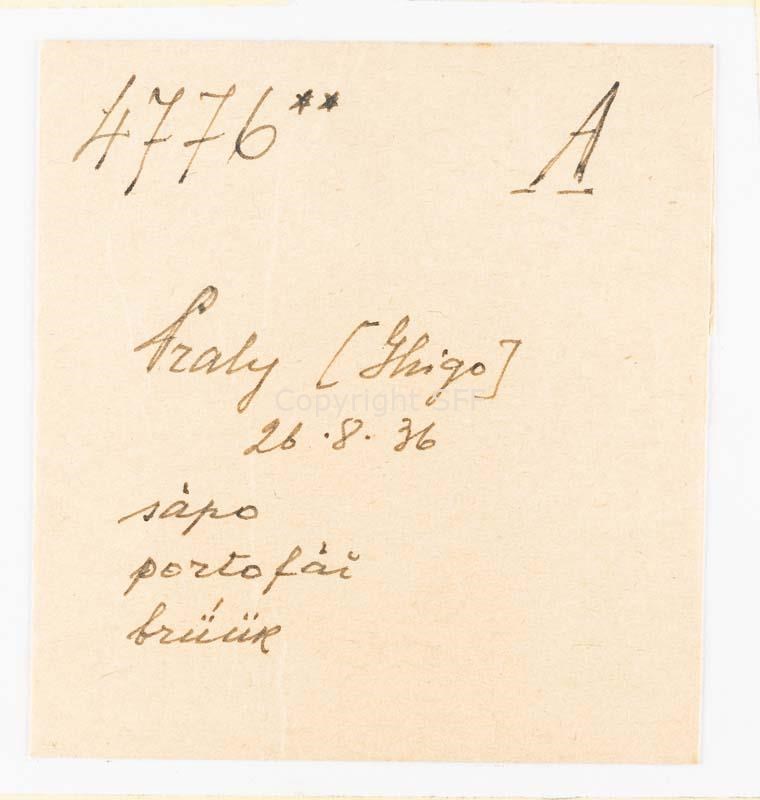 4776** A
Praly [Ghigo]
Copyright SFF
26.8.36
sápo
portofái
brǘük